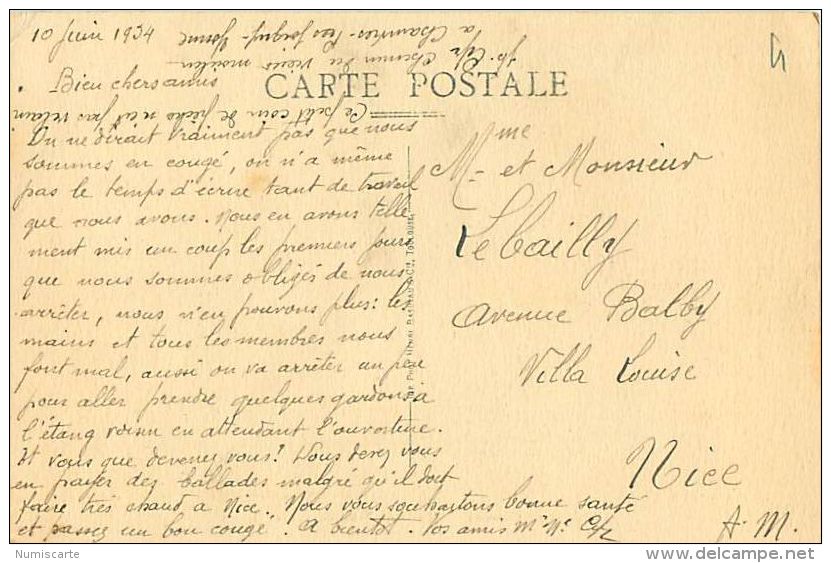 10 Juin 1934
Chemin du vieux moulin
a Chamvres - par Joigny - Yonne
Ce petit coin de pêche n'est pas vilain
CARTE POSTALE
Bien chers amis
On ne dirait vraiment pas que nous
sommes en congé, on n'a même
pas le temps d'écrire tant de travail
que nous avons. Nous en avons telle
ment mis un coup les premiers jours
que nous sommes obligés de nous
arrêter, nous n'en pouvons plus: les
mains et tous les membres nous
font mal, aussi on va arrêter un peu
pour aller prendre quelques gardons à
l'étang voisin en attendant l'ouverture.
Et vous que devenez vous? Vous devez vous
en payer des ballades malgré qu'il doit
faire très chaud à Nice. Nous vous souhaitons bonne santé
et passez un bon congé. A bientôt. Vos amis
Mme et Monsieur
Lebailly
Avenue Balby
Villa Louise
Nice
A. M.
Numiscarte
delcampe.net